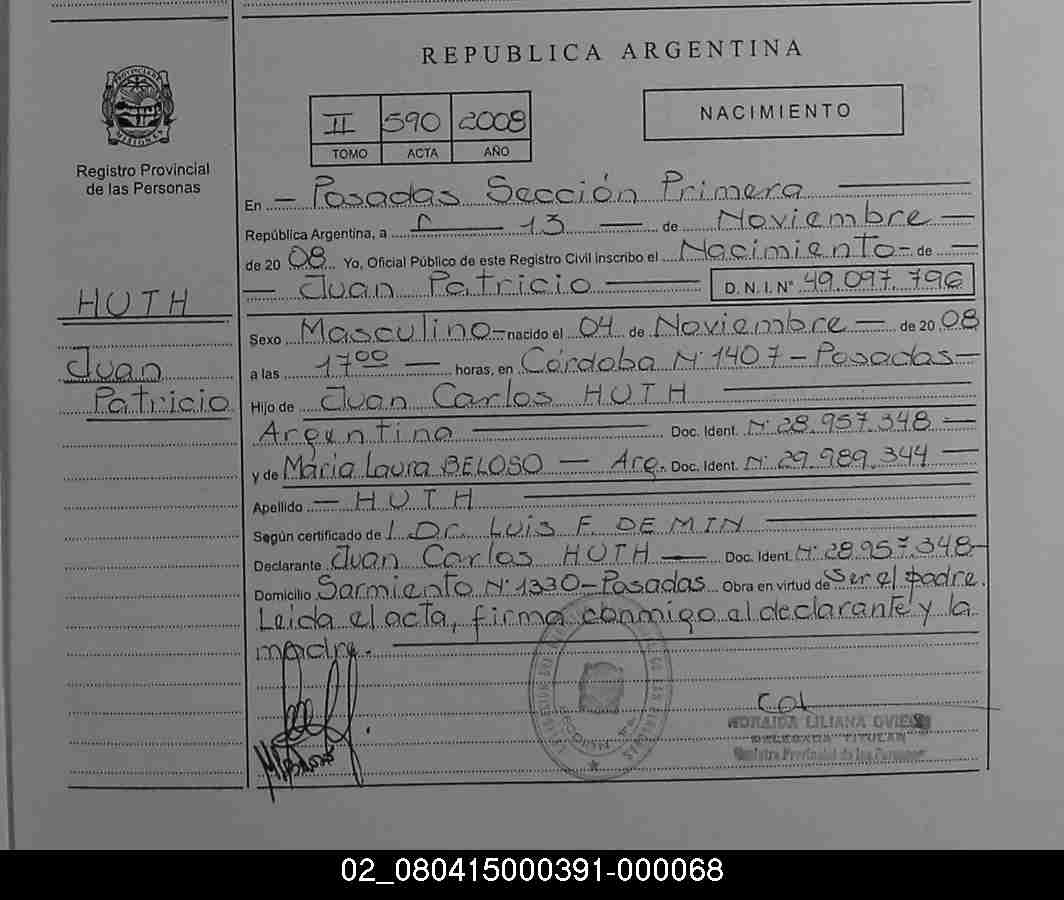 REPUBLICA ARGENTINA
PROVINCIA DE MISIONES
Registro Provincial
de las Personas
II 590 2008
TOMO ACTA AÑO
NACIMIENTO
HUTH
Juan
Patricio
En - Posadas Sección Primera
República Argentina, a 13 de Noviembre
de 2008. Yo, Oficial Público de este Registro Civil inscribo el Nacimiento - de
Juan Patricio D.N.I. N° 49.097.796
Sexo Masculino - nacido el 04 de Noviembre de 2008
a las 17 00 horas, en Córdoba N° 1407 - Posadas
Hijo de Juan Carlos HUTH
Argentino Doc. Ident. N° 28.957.348
y de María Laura BELOSO - Arg. Doc. Ident. N° 29.989.344
Apellido HUTH
Según certificado de Dr. LUIS F. DE MIN
Declarante Juan Carlos HUTH Doc. Ident. N° 28.957.348
Domicilio Sarmiento N° 1330 - Posadas Obra en virtud de Ser el padre.
Leída el acta, firma conmigo el declarante y la
madre.
LILIANA
DELEGADA TITULAR
Registro Provincial de las Personas
02_080415000391-000068